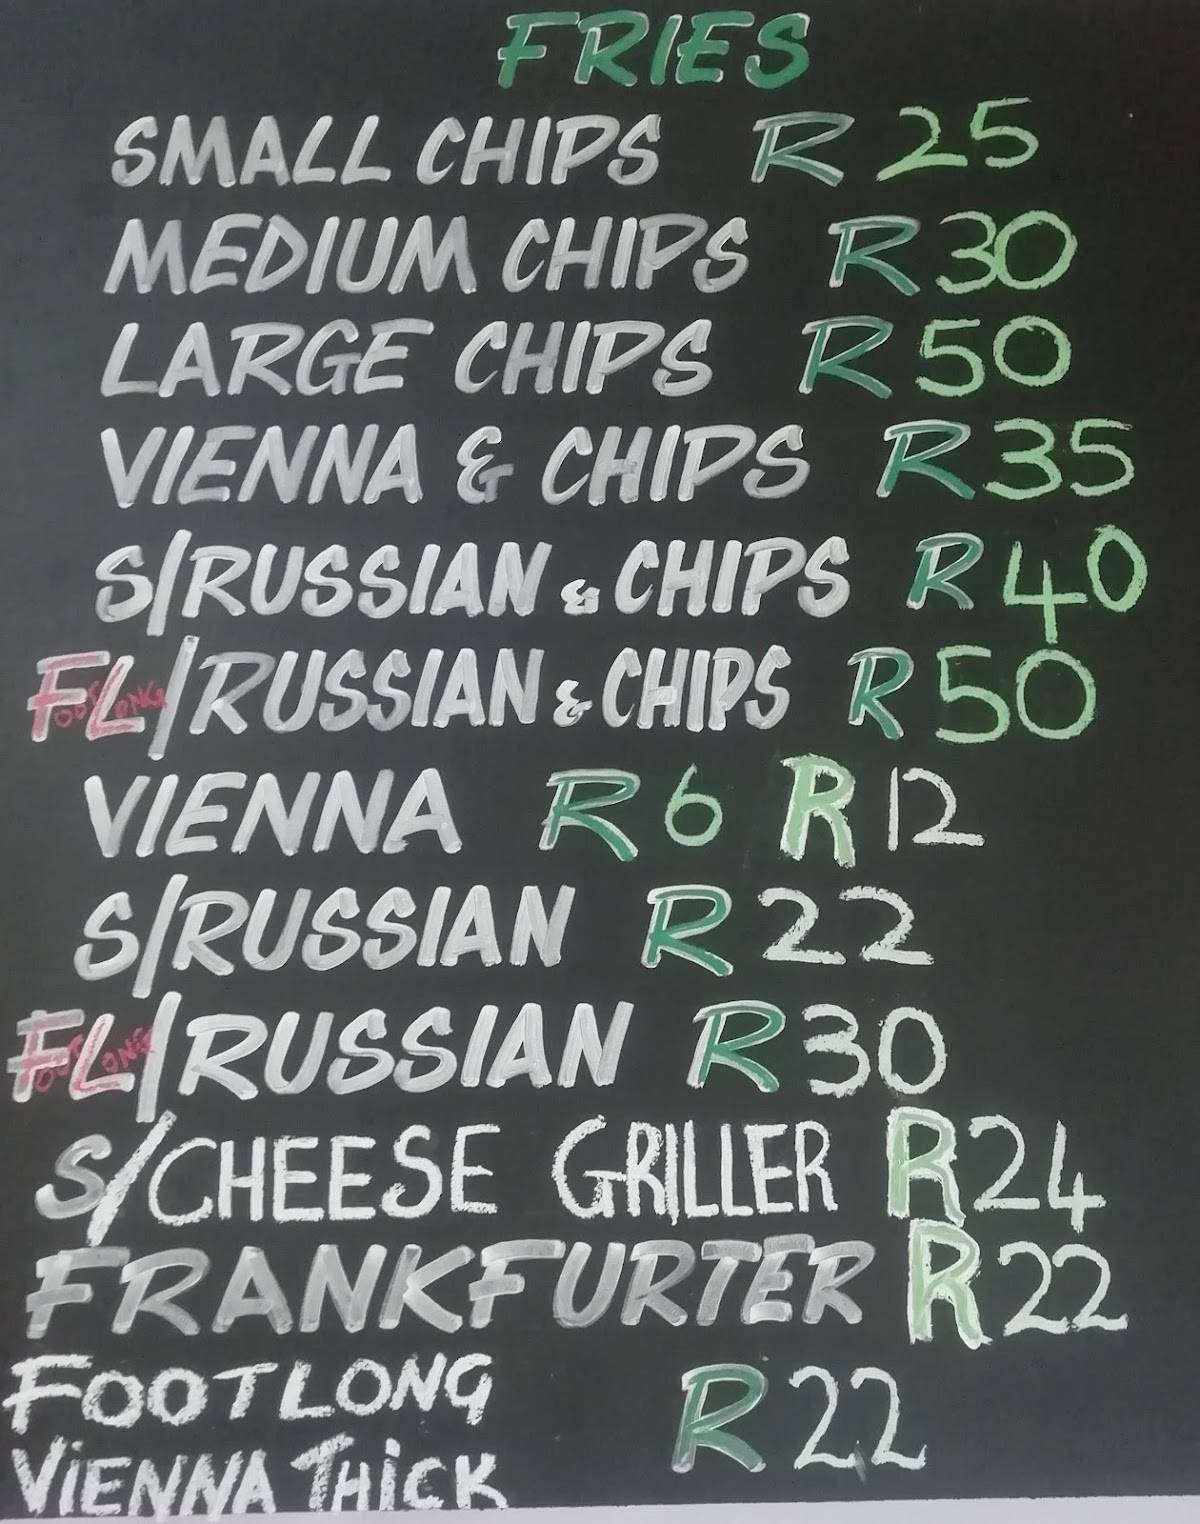 FRIES
SMALL CHIPS R 25
MEDIUM CHIPS R 30
LARGE CHIPS R 50
VIENNA & CHIPS R 35
S/RUSSIAN & CHIPS R 40
FL/RUSSIAN & CHIPS R 50
FOOT LONG
VIENNA R 6 R 12
S/RUSSIAN R 22
FL/RUSSIAN R 30
FOOT LONG
S/CHEESE GRILLER R 24
FRANKFURTER R 22
FOOTLONG R 22
VIENNA THICK